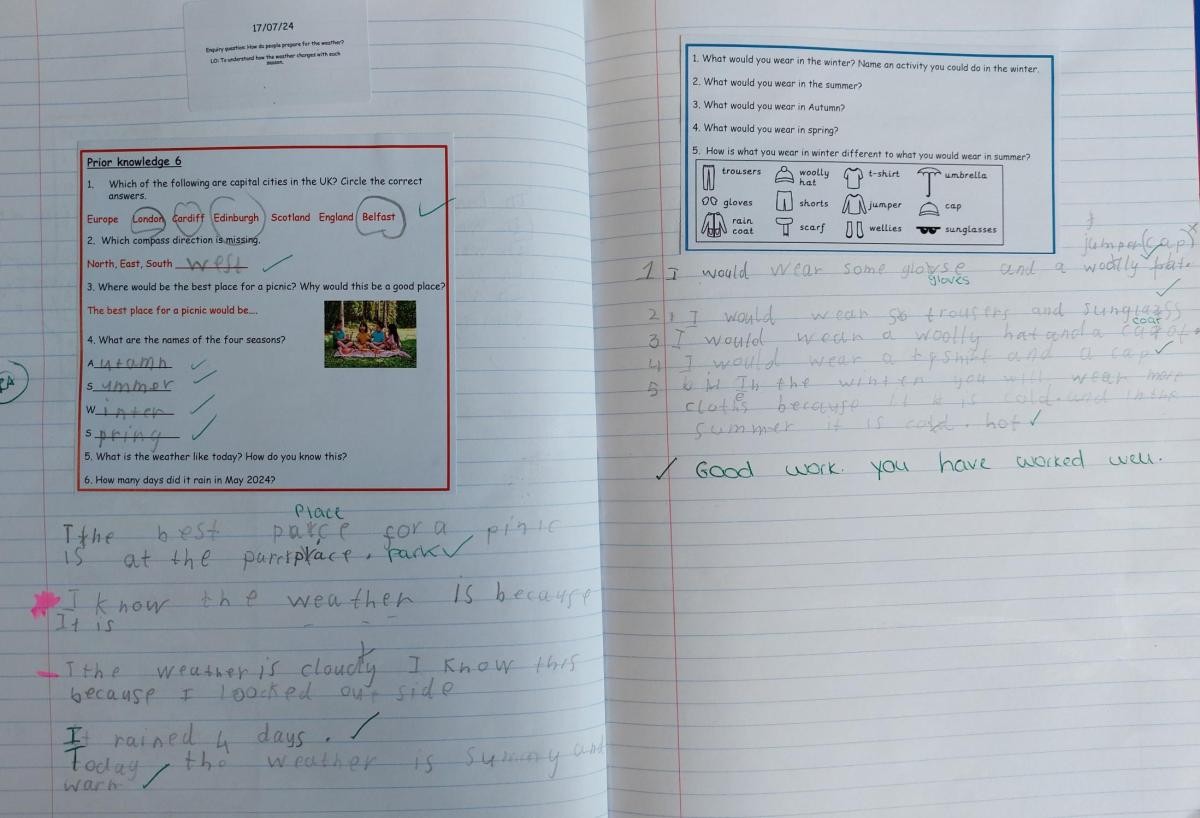 17/07/24
Enquiry question: How do people prepare for the weather?
LO: To understand how the weather changes with each
season.
Prior knowledge 6
1. Which of the following are capital cities in the UK? Circle the correct
answers.
Europe London Cardiff Edinburgh Scotland England Belfast
2. Which compass direction is missing.
North, East, South west
3. Where would be the best place for a picnic? Why would this be a good place?
The best place for a picnic would be....
4. What are the names of the four seasons?
A utamn
S ummer
W inter
S pring
5. What is the weather like today? How do you know this?
6. How many days did it rain in May 2024?
Place
the best parce for a pinic
is at the place. park
I know the weather is because
It is
the weather is cloudy I know this
because I loocked out side
It rained 4 days.
Today the weather is sunny and
warm
1. What would you wear in the winter? Name an activity you could do in the winter.
2. What would you wear in the summer?
3. What would you wear in Autumn?
4. What would you wear in spring?
5. How is what you wear in winter different to what you would wear in summer?
trousers woolly hat t-shirt umbrella
gloves shorts jumper cap
rain coat scarf wellies sunglasses
jumper (cap)
1 I would wear some glovse and a woolly hat.
gloves
2 I would wear trousers and sunglasss
coat
3 I would wear a woolly hat and a
4 I would wear a and a cap
5 In the winter you will wear more
e
cloths because it is cold and in the
summer it is cold. hot
Good work. you have worked well.